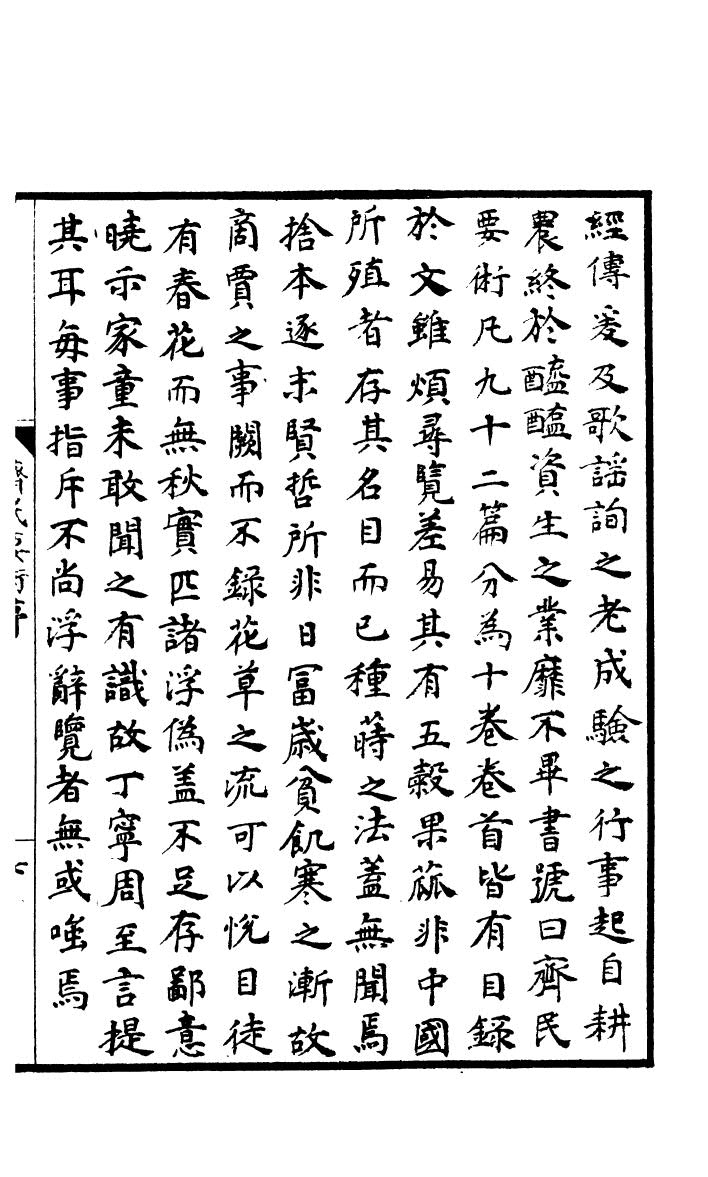 經傳爰及歌謡詢之老成驗之行事起自耕
農終於醯醢資生之業靡不畢書號曰齊民
要術凡九十二篇分為十卷卷首皆有目録
於文雖煩尋覽差易其有五穀果蓏非中國
所殖者存其名目而已種蒔之法蓋無聞焉
捨本逐末賢哲所非日冨歲貧飢寒之漸故
商賈之事闕而不録花草之流可以悅目徒
有春花而無秋實匹諸浮偽盖不足存鄙意
曉示家童未敢聞之有識故丁寧周至言提
其耳每事指斥不尚浮辭覽者無或嗤焉